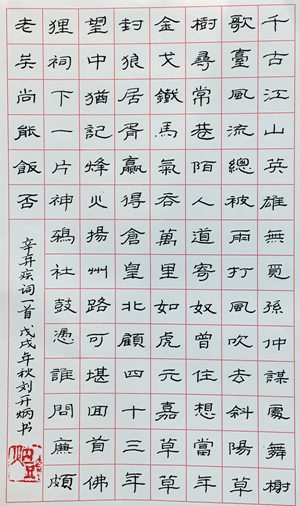 千古江山英雄無覓孫仲謀處舞榭
歌臺風流總被雨打風吹去斜陽草
樹尋常巷陌人道寄奴曾住想當年
金戈鐵馬氣吞萬里如虎元嘉草草
封狼居胥贏得倉皇北顧四十三年
望中猶記烽火揚州路可堪回首佛
狸祠下一片神鴉社鼓憑誰問廉頗
老矣尚能飯否
辛弃疾词一首戊戌年秋刘炳书